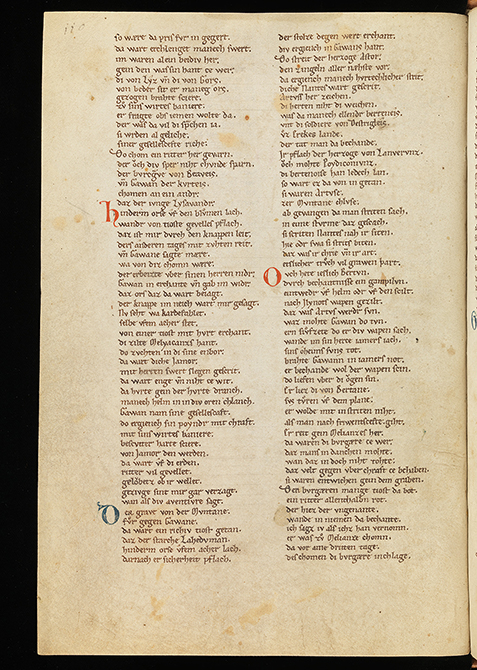 so wart da pris fur in gezert.
da wart erchlenget manech swert.
im waren alein beidiv her,
gein den was sin hant ze wer.
di von Lyz vn̄ di von Gors,
von beder sit er maneg ors,
gezogen brahte sciere,
zv sins wirtes baniere.
er fragte obs iemen wolte da.
der was da vil di sprchen ia.
si wrden al geliche,
siner geselleschefte riche.
Do chom ein riter her gevarn.
der och div sper niht chvnde sparn.
der byrcgrve von Beaveis,
vn̄ Gawan der kvrteis,
chomen an ein andr,
daz der ivnge Lysavandr,
hinderm orse vf den blvmen lach.
wander von tioste gevelles pflach.
daz ist mir dvrch den knappen leit,
ders anderen tages mit zvhten reit.
vn̄ Gawane sagte mære.
wa von diz chomn were.
der erbeizte vber sinen herren nidr,
Gawan in erchante vn̄ gab im widr,
daz ors daz da wart beiagt.
der knappe im neich wart mir gesagt.
Nv seht wa kardefablet,
selbe vfem acher stet,
von einer tiost mit hvrt erchant.
di zilte Melyacanzs hant.
do zvchten in di sine enbor.
da wart diche Iamor,
mit herten swert slegen gescrit.
da wart enge vn̄ niht ze wit.
da hvrte gein der hvrte dranch.
manech helm in in div oren chlanch.
Gawan nam sine geselleschaft.
do ergiench sin poyndr mit chraft.
mit sins wirtes baniere.
bescutter harte sciere.
von Iamor den werden.
da wart vf di erden.
riter vil gevellet.
gelobet ob ir wellet.
gezivge sint mir gar verzagt.
wan als div aventivre sagt.
Der grave von der Mvntane
fvr gegen Gawane.
da wart ein richiv tiost getan.
daz der starche Lahedvman.
hinderm orse vfem acher lach.
darnach er sicherheit pflach.
der stolze degen wert erchant.
div ergiench in Gawans hant.
Do streit der herzoge Astor,
den Lingeln aller næhste vor.
da ergiench manech hvrteclicher strit.
diche Nantes wart gescrit.
Artvss her zeichen.
di herten niht di weichen.
was da manech ellender berteneis,
vnt di soldiere von Destrigleis,
vz Erekes lande.
der tat man da bechande.
ir pflach der herzoge von Lanvervnz.
och mohte Poydiconivnz,
di bertenoise han ledech lan.
so wart ez da von in getan.
si waren Artvse.
zer Mvntane chlvse,
ab gevangen da man striten sach.
in eime stvrme daz gescach.
si scriten Nantes nah ir siten.
hie oder swa si strites biten.
daz was ir chrie vn̄ ir art.
etslicher trvch vil grawen part.
Och hete ieslich bertvn.
dvrch bechantnisse ein gampilvn.
eintwedr vf helm odr vf den scilt.
nach Ilynots wapen gezilt.
daz was Artvs werdr svn.
waz mohte Gawan do tvn.
ern sivfzete do er div wapen sach.
wande im sin herze iamers iach.
sins oheims svns tot.
brahte Gawann in iamers not.
er bechande wol der wapen scin.
do liefen vber di ogen sin.
er liez di von Bertane.
svs tvren vf dem plane.
er wolde mit in striten niht,
als man noch frivntscefte giht.
er reit gein Melianzes her.
da waren di burgære ze wer.
daz mans in danchen mohte.
wan daz in doch niht tohte.
daz velt gegen vber chraft ze behaben.
si waren entwichen gein dem graben.
Den burgæren manige tiost da bot.
ein riter allenthalbn rot.
der hiez der vngenante.
wande in niemen da bechante.
ich sags iv als ichz han vernomn.
er was zv Melianze chomn.
da vor ame dritten tage.
des chomen di burgære inchlage.